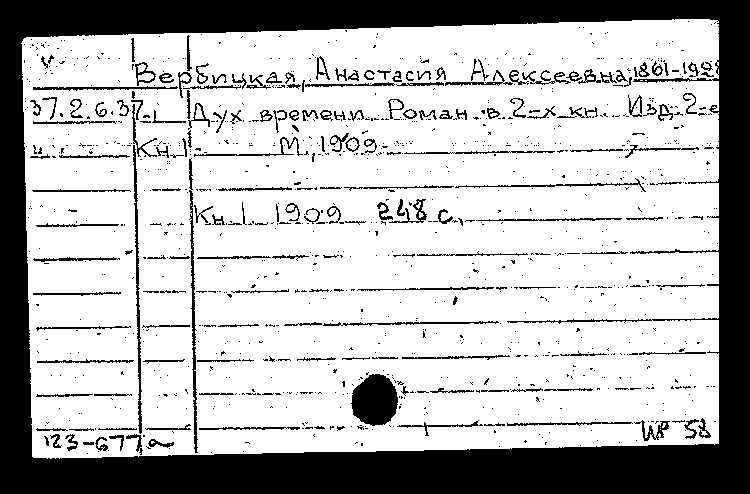 Вербицкая, Анастасия Алексеевна, 1861-1928
37.2.6.37. Дух времени. Роман в 2-х кн. Изд. 2-е
Кн.1 М., 1909.
Кн. 1. 1909 248 с.
123-677а
ИР 58